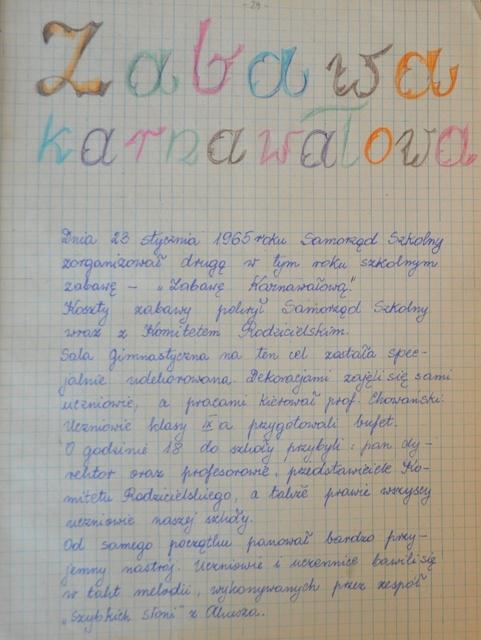 - 29 -
Zabawa
karnawałowa
Dnia 23 stycznia 1965 roku Samorząd Szkolny
zorganizował drugą w tym roku szkolnym
zabawę - „Zabawę Karnawałową".
Koszty zabawy pokrył Samorząd Szkolny
wraz z Komitetem Rodzicielskim.
Sala gimnastyczna na ten cel została spec-
jalnie udekorowana. Dekoracjami zajęli się sami
uczniowie, a pracami kierował prof. Chowański.
Uczniowie klasy IX a przygotowali bufet.
O godzinie 18 do szkoły przybyli: pan dy-
rektor oraz profesorowie, przedstawiciele Ko-
mitetu Rodzicielskiego, a także prawie wszyscy
uczniowie naszej szkoły.
Od samego początku panował bardzo przy-
jemny nastrój. Uczniowie i uczennice bawili się
w takt melodii, wykonywanych przez zespół
„Szybkich słoni" z